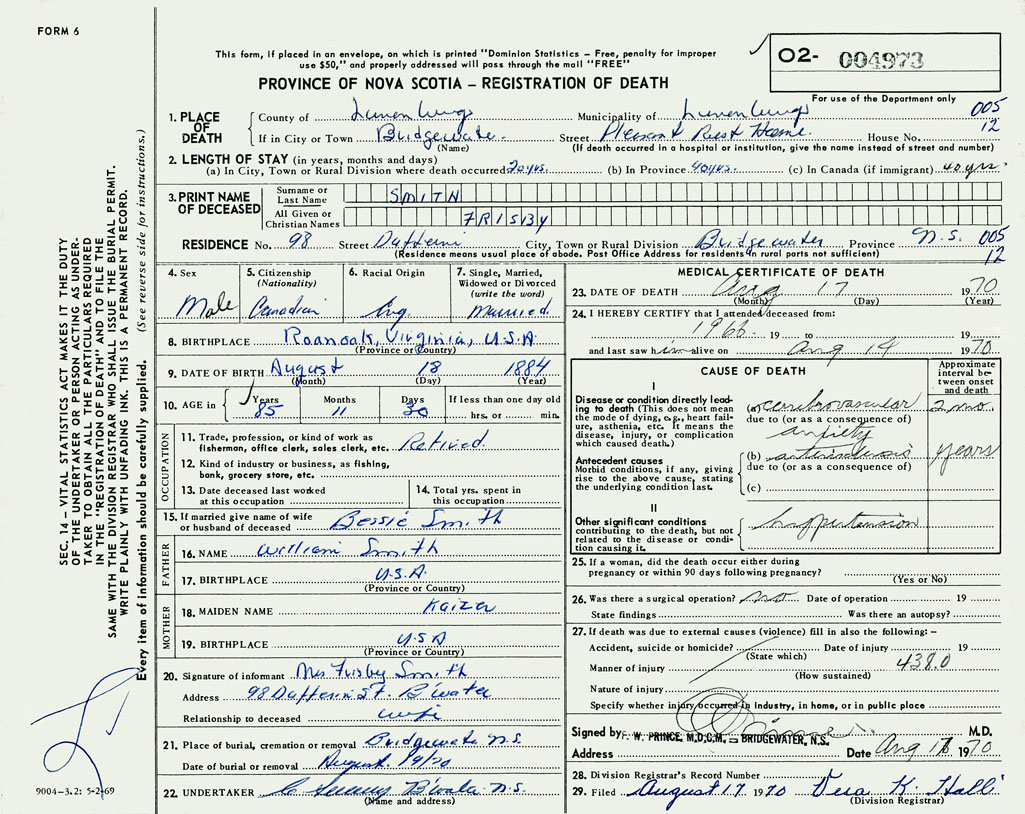 FORM 6
This form, if placed in an envelope, on which is printed "Dominion Statistics – Free, penalty for improper
use $50," and properly addressed will pass through the mail "FREE"
O2- 004973
PROVINCE OF NOVA SCOTIA – REGISTRATION OF DEATH
For use of the Department only
1. PLACE OF DEATH
County of Lunenburg Municipality of Lunenburg 005
If in City or Town Bridgewater Street Pleasant Rest Home House No. 12
(Name) (If death occurred in a hospital or institution, give the name instead of street and number)
2. LENGTH OF STAY (in years, months and days)
(a) In City, Town or Rural Division where death occurred 20 yrs. (b) In Province 40 yrs. (c) In Canada (if immigrant) 40 yrs
3. PRINT NAME OF DECEASED
Surname or Last Name SMITH
All Given or Christian Names FRISBY
RESIDENCE No. 98 Street Dufferin City, Town or Rural Division Bridgewater Province N.S. 005
(Residence means usual place of abode. Post Office Address for residents in rural parts not sufficient) 12
4. Sex
Male
5. Citizenship
(Nationality)
Canadian
6. Racial Origin
Eng.
7. Single, Married,
Widowed or Divorced
(write the word)
Married.
8. BIRTHPLACE Roanoak, Virginia, U.S.A.
(Province or Country)
9. DATE OF BIRTH August 18 1884
(Month) (Day) (Year)
10. AGE in
Years Months Days If less than one day old
85 11 30 hrs. or min.
OCCUPATION
11. Trade, profession, or kind of work as
fisherman, office clerk, sales clerk, etc. Retired.
12. Kind of industry or business, as fishing,
bank, grocery store, etc.
13. Date deceased last worked
at this occupation
14. Total yrs. spent in
this occupation
15. If married give name of wife
or husband of deceased Bessie Smith
FATHER
16. NAME William Smith
17. BIRTHPLACE U.S.A.
(Province or Country)
MOTHER
18. MAIDEN NAME Kaizer
19. BIRTHPLACE USA
(Province or Country)
20. Signature of informant Mrs Frisby Smith
Address 98 Dufferin St. B'water
Relationship to deceased wife
21. Place of burial, cremation or removal Bridgewater N.S.
Date of burial or removal August 19/70
22. UNDERTAKER B'water N.S.
(Name and address)
MEDICAL CERTIFICATE OF DEATH
23. DATE OF DEATH Aug 17 1970
(Month) (Day) (Year)
24. I HEREBY CERTIFY that I attended deceased from:
1966 19 to 19
and last saw him alive on Aug 14 1970
CAUSE OF DEATH
Approximate
interval be-
tween onset
and death
I
Disease or condition directly lead-
ing to death (This does not mean
the mode of dying, e.g., heart fail-
ure, asthenia, etc. It means the
disease, injury, or complication
which caused death.)
(a) cerebrovascular 2 mo.
due to (or as a consequence of)
Antecedent causes
Morbid conditions, if any, giving
rise to the above cause, stating
the underlying condition last.
(b) arteriosclerosis years
due to (or as a consequence of)
(c)
II
Other significant conditions
contributing to the death, but not
related to the disease or condi-
tion causing it.
hypertension
25. If a woman, did the death occur either during
pregnancy or within 90 days following pregnancy?
(Yes or No)
26. Was there a surgical operation? no Date of operation 19
State findings Was there an autopsy?
27. If death was due to external causes (violence) fill in also the following:–
Accident, suicide or homicide? Date of injury 19
(State which)
Manner of injury 438.0
(How sustained)
Nature of injury
Specify whether injury occurred in industry, in home, or in public place
Signed by F. W. PRINCE, M.D.,C.M. – BRIDGEWATER, N.S. M.D.
Address Date Aug 18 1970
28. Division Registrar's Record Number
29. Filed August 17 1970 Vera K. Hall
(Division Registrar)
SEC. 14 – VITAL STATISTICS ACT MAKES IT THE DUTY
OF THE UNDERTAKER OR PERSON ACTING AS UNDER-
TAKER TO OBTAIN ALL THE PARTICULARS REQUIRED
IN THE "REGISTRATION OF DEATH" AND TO FILE THE
SAME WITH THE DIVISION REGISTRAR WHO SHALL ISSUE THE BURIAL PERMIT.
WRITE PLAINLY WITH UNFADING INK. THIS IS A PERMANENT RECORD.
Every item of information should be carefully supplied. (See reverse side for instructions.)
9004-3.2: 5-2-69